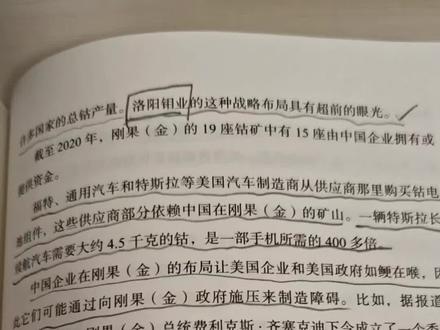 许多国家的总钴产量。洛阳钼业的这种战略布局具有超前的眼光。
截至 2020 年，刚果（金）的 19 座钴矿中有 15 座由中国企业拥有或
提供资金。
福特、通用汽车和特斯拉等美国汽车制造商从供应商那里购买钴电
池组件，这些供应商部分依赖中国在刚果（金）的矿山。一辆特斯拉长
续航汽车需要大约 4.5 千克的钴，是一部手机所需的 400 多倍。
中国企业在刚果（金）的布局让美国企业和美国政府如鲠在喉，因
此它们可能通过向刚果（金）政府施压来制造障碍。比如，据报道
刚果（金）总统费利克斯·齐塞克迪下令成立了一个